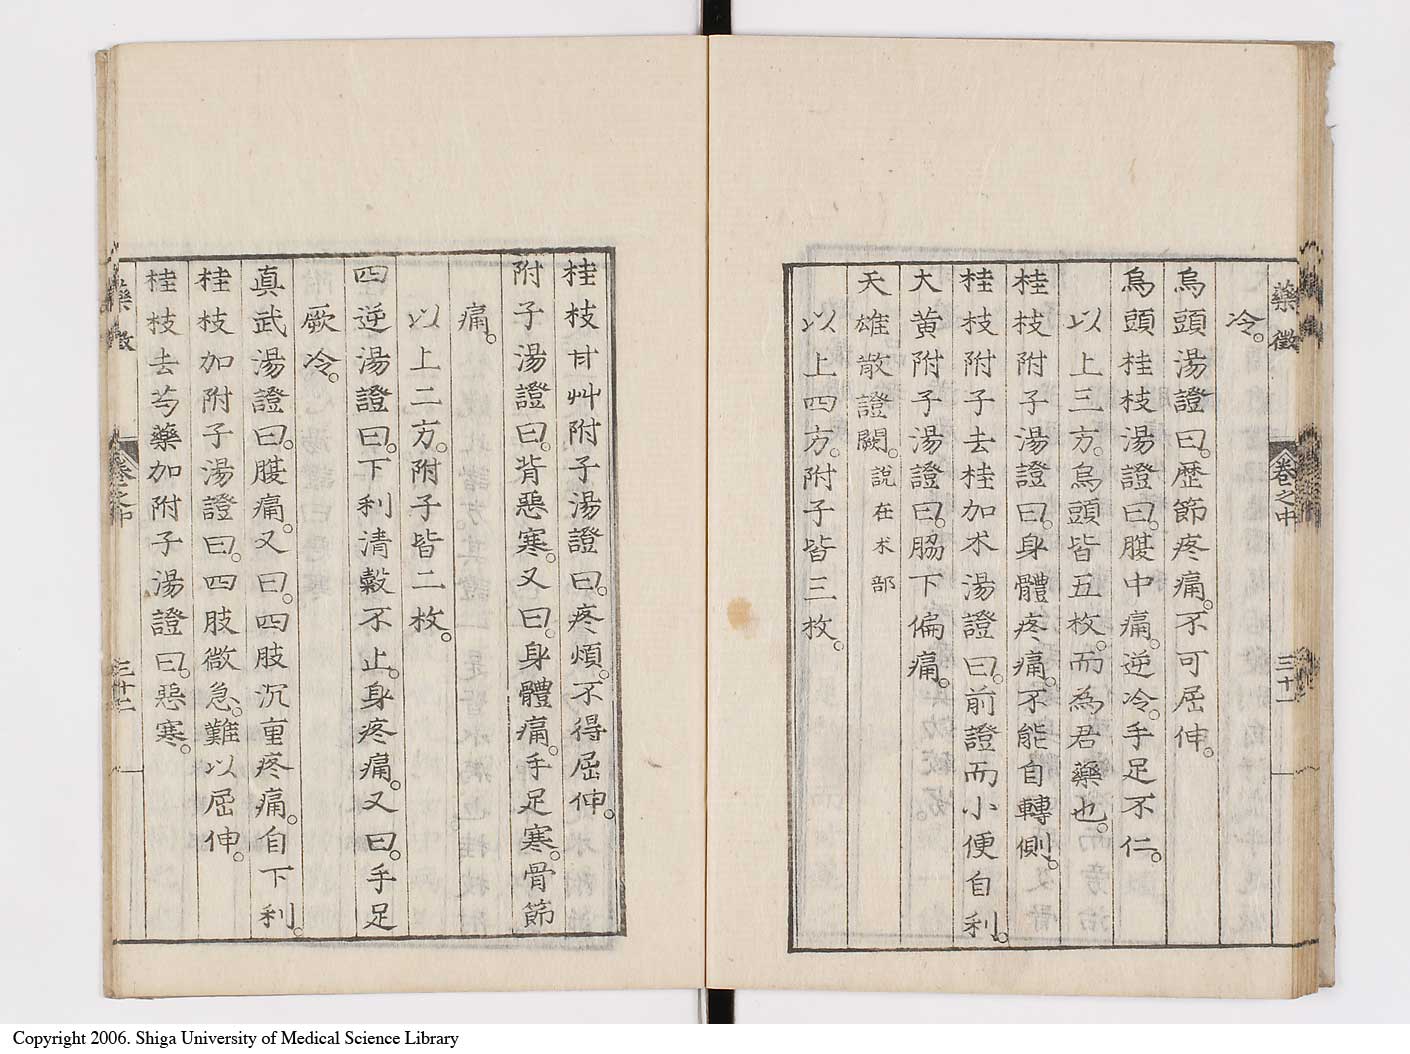 藥徵 卷之中 三十一
冷。
烏頭湯證曰。歷節疼痛。不可屈伸。
烏頭桂枝湯證曰。腹中痛。逆冷。手足不仁。
以上三方。烏頭皆五枚。而為君藥也。
桂枝附子湯證曰。身體疼痛。不能自轉側。
桂枝附子去桂加朮湯證曰。前證而小便自利。
大黃附子湯證曰。脇下偏痛。
天雄散證闕。說在朮部
以上四方。附子皆三枚。
桂枝甘艸附子湯證曰。疼煩。不得屈伸。
附子湯證曰。背惡寒。又曰。身體痛。手足寒。骨節
痛。
以上二方。附子皆二枚。
四逆湯證曰。下利清穀不止。身疼痛。又曰。手足
厥冷。
真武湯證曰。腹痛。又曰。四肢沉重疼痛。自下利。
桂枝加附子湯證曰。四肢微急。難以屈伸。
桂枝去芍藥加附子湯證曰。惡寒。
藥徵 卷之中 三十二
Copyright 2006. Shiga University of Medical Science Library